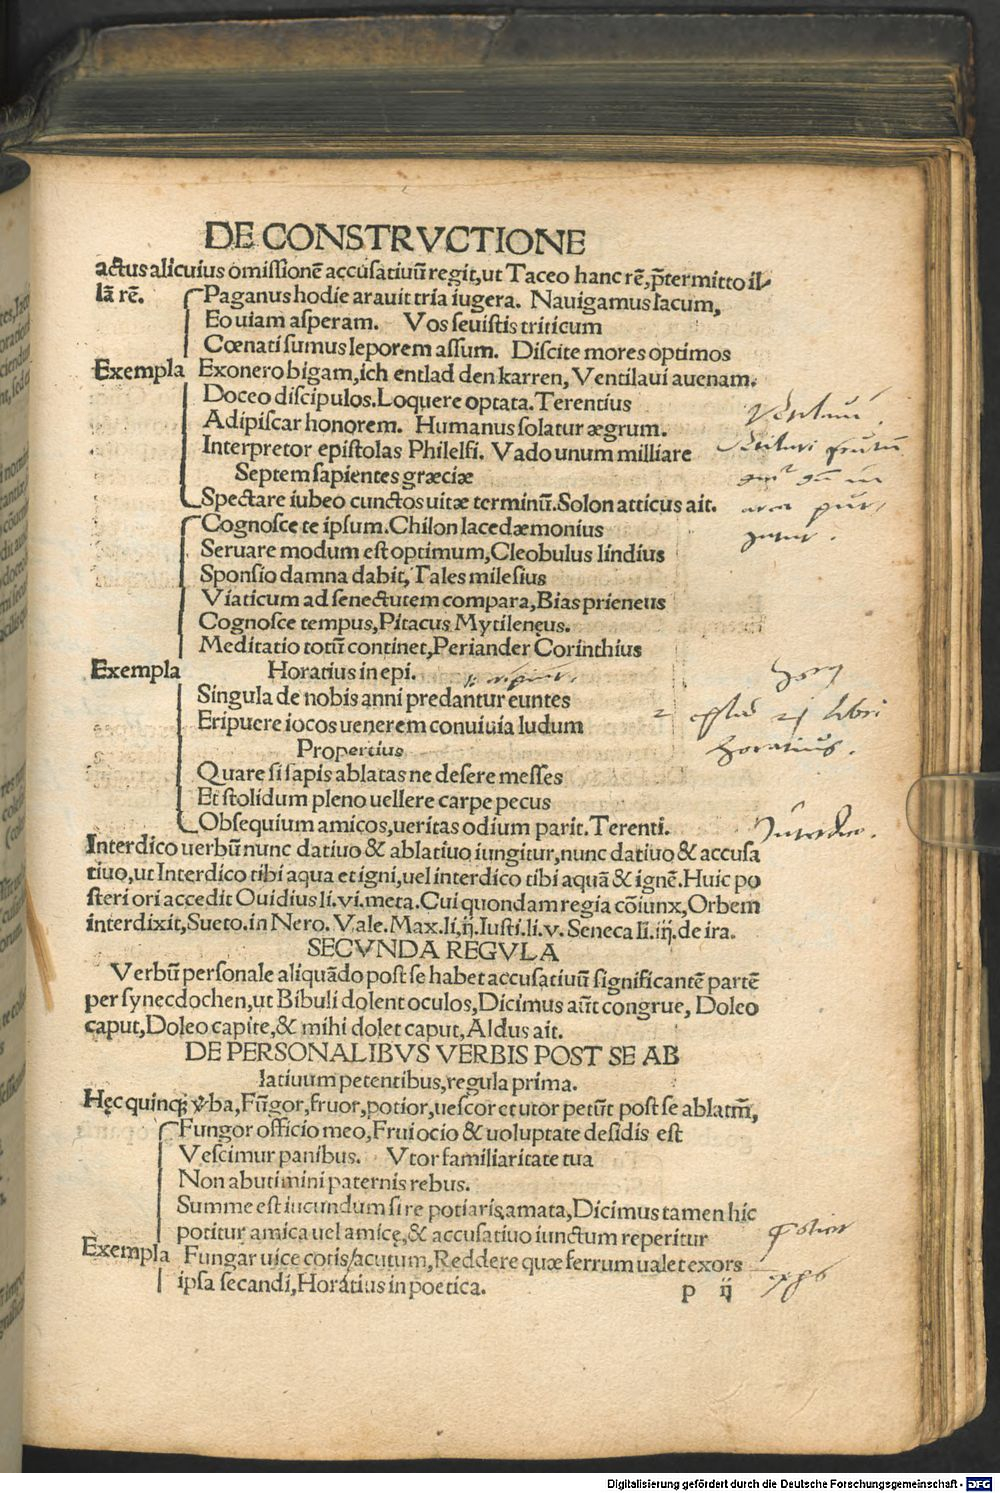 DE CONSTRVCTIONE
actus alicuius omissionē accusatiuū regit,ut Taceo hanc rē,p̄termitto il-
lā rē.
Paganus hodie arauit tria iugera. Nauigamus lacum,
Eo uiam asperam. Vos seuistis triticum
Cœnati sumus leporem assum. Discite mores optimos
Exempla Exonero bigam,ich entlad den karren, Ventilaui auenam.
Doceo discipulos.Loquere optata.Terentius
Adipiscar honorem. Humanus solatur ægrum.
Interpretor epistolas Philelfi. Vado unum milliare
Septem sapientes græciæ
Spectare iubeo cunctos uitæ terminū.Solon atticus ait.
Cognosce te ipsum.Chilon lacedæmonius
Seruare modum est optimum,Cleobulus lindius
Sponsio damna dabit,Tales milesius
Viaticum ad senectutem compara,Bias prieneus
Cognosce tempus,Pitacus Mytilenęus.
Meditatio totū continet,Periander Corinthius
Exempla Horatius in epi.
Singula de nobis anni predantur euntes
Eripuere iocos uenerem conuiuia ludum
Propertius
Quare si sapis ablatas ne desere messes
Et stolidum pleno uellere carpe pecus
Obsequium amicos,ueritas odium parit.Terenti.
Interdico uerbū nunc datiuo & ablatiuo iungitur,nunc datiuo & accusa
tiuo,ut Interdico tibi aqua et igni,uel interdico tibi aquā & ignē.Huic po
steri ori accedit Ouidius li.vi.meta.Cui quondam regia cōiunx,Orbem
interdixit,Sueto.in Nero. Vale.Max.li,ij.Iusti.li.v. Seneca li.iij.de ira.
SECVNDA REGVLA
Verbū personale aliquādo post se habet accusatiuū significantē partē
per synecdochen,ut Bibuli dolent oculos,Dicimus aūt congrue, Doleo
caput,Doleo capite,& mihi dolet caput,Aldus ait.
DE PERSONALIBVS VERBIS POST SE AB
latiuum petentibus,regula prima.
Hęc quinqꝫ v̄ba,Fūgor,fruor,potior,uescor et utor petūt post se ablatm̄,
Fungor officio meo,Frui ocio & uoluptate desidis est
Vescimur panibus. Vtor familiaritate tua
Non abutimini paternis rebus.
Summe est iucundum si re potiaris amata,Dicimus tamen hic
potitur amica uel amicę,& accusatiuo iunctum reperitur
Exempla Fungar uice cotis/acutum,Reddere quæ ferrum ualet exors
ipsa secandi,Horatius in poetica.
p ij
libri
Horatius.
Digitalisierung gefördert durch die Deutsche Forschungsgemeinschaft - DFG